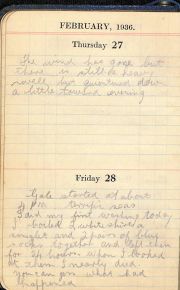 FEBRUARY, 1936.
Thursday 27
The wind has gone but
there is still a heavy
swell has quietened down
a little toward evening
Friday 28
Gale started at about
4 pm terrific seas
Did my first washing today
boiled 1 white shirt a
singlet and 2 pairs of blue
socks together and left them
for 24 hours. When I looked
at them I nearly died
you can guess what had
happened